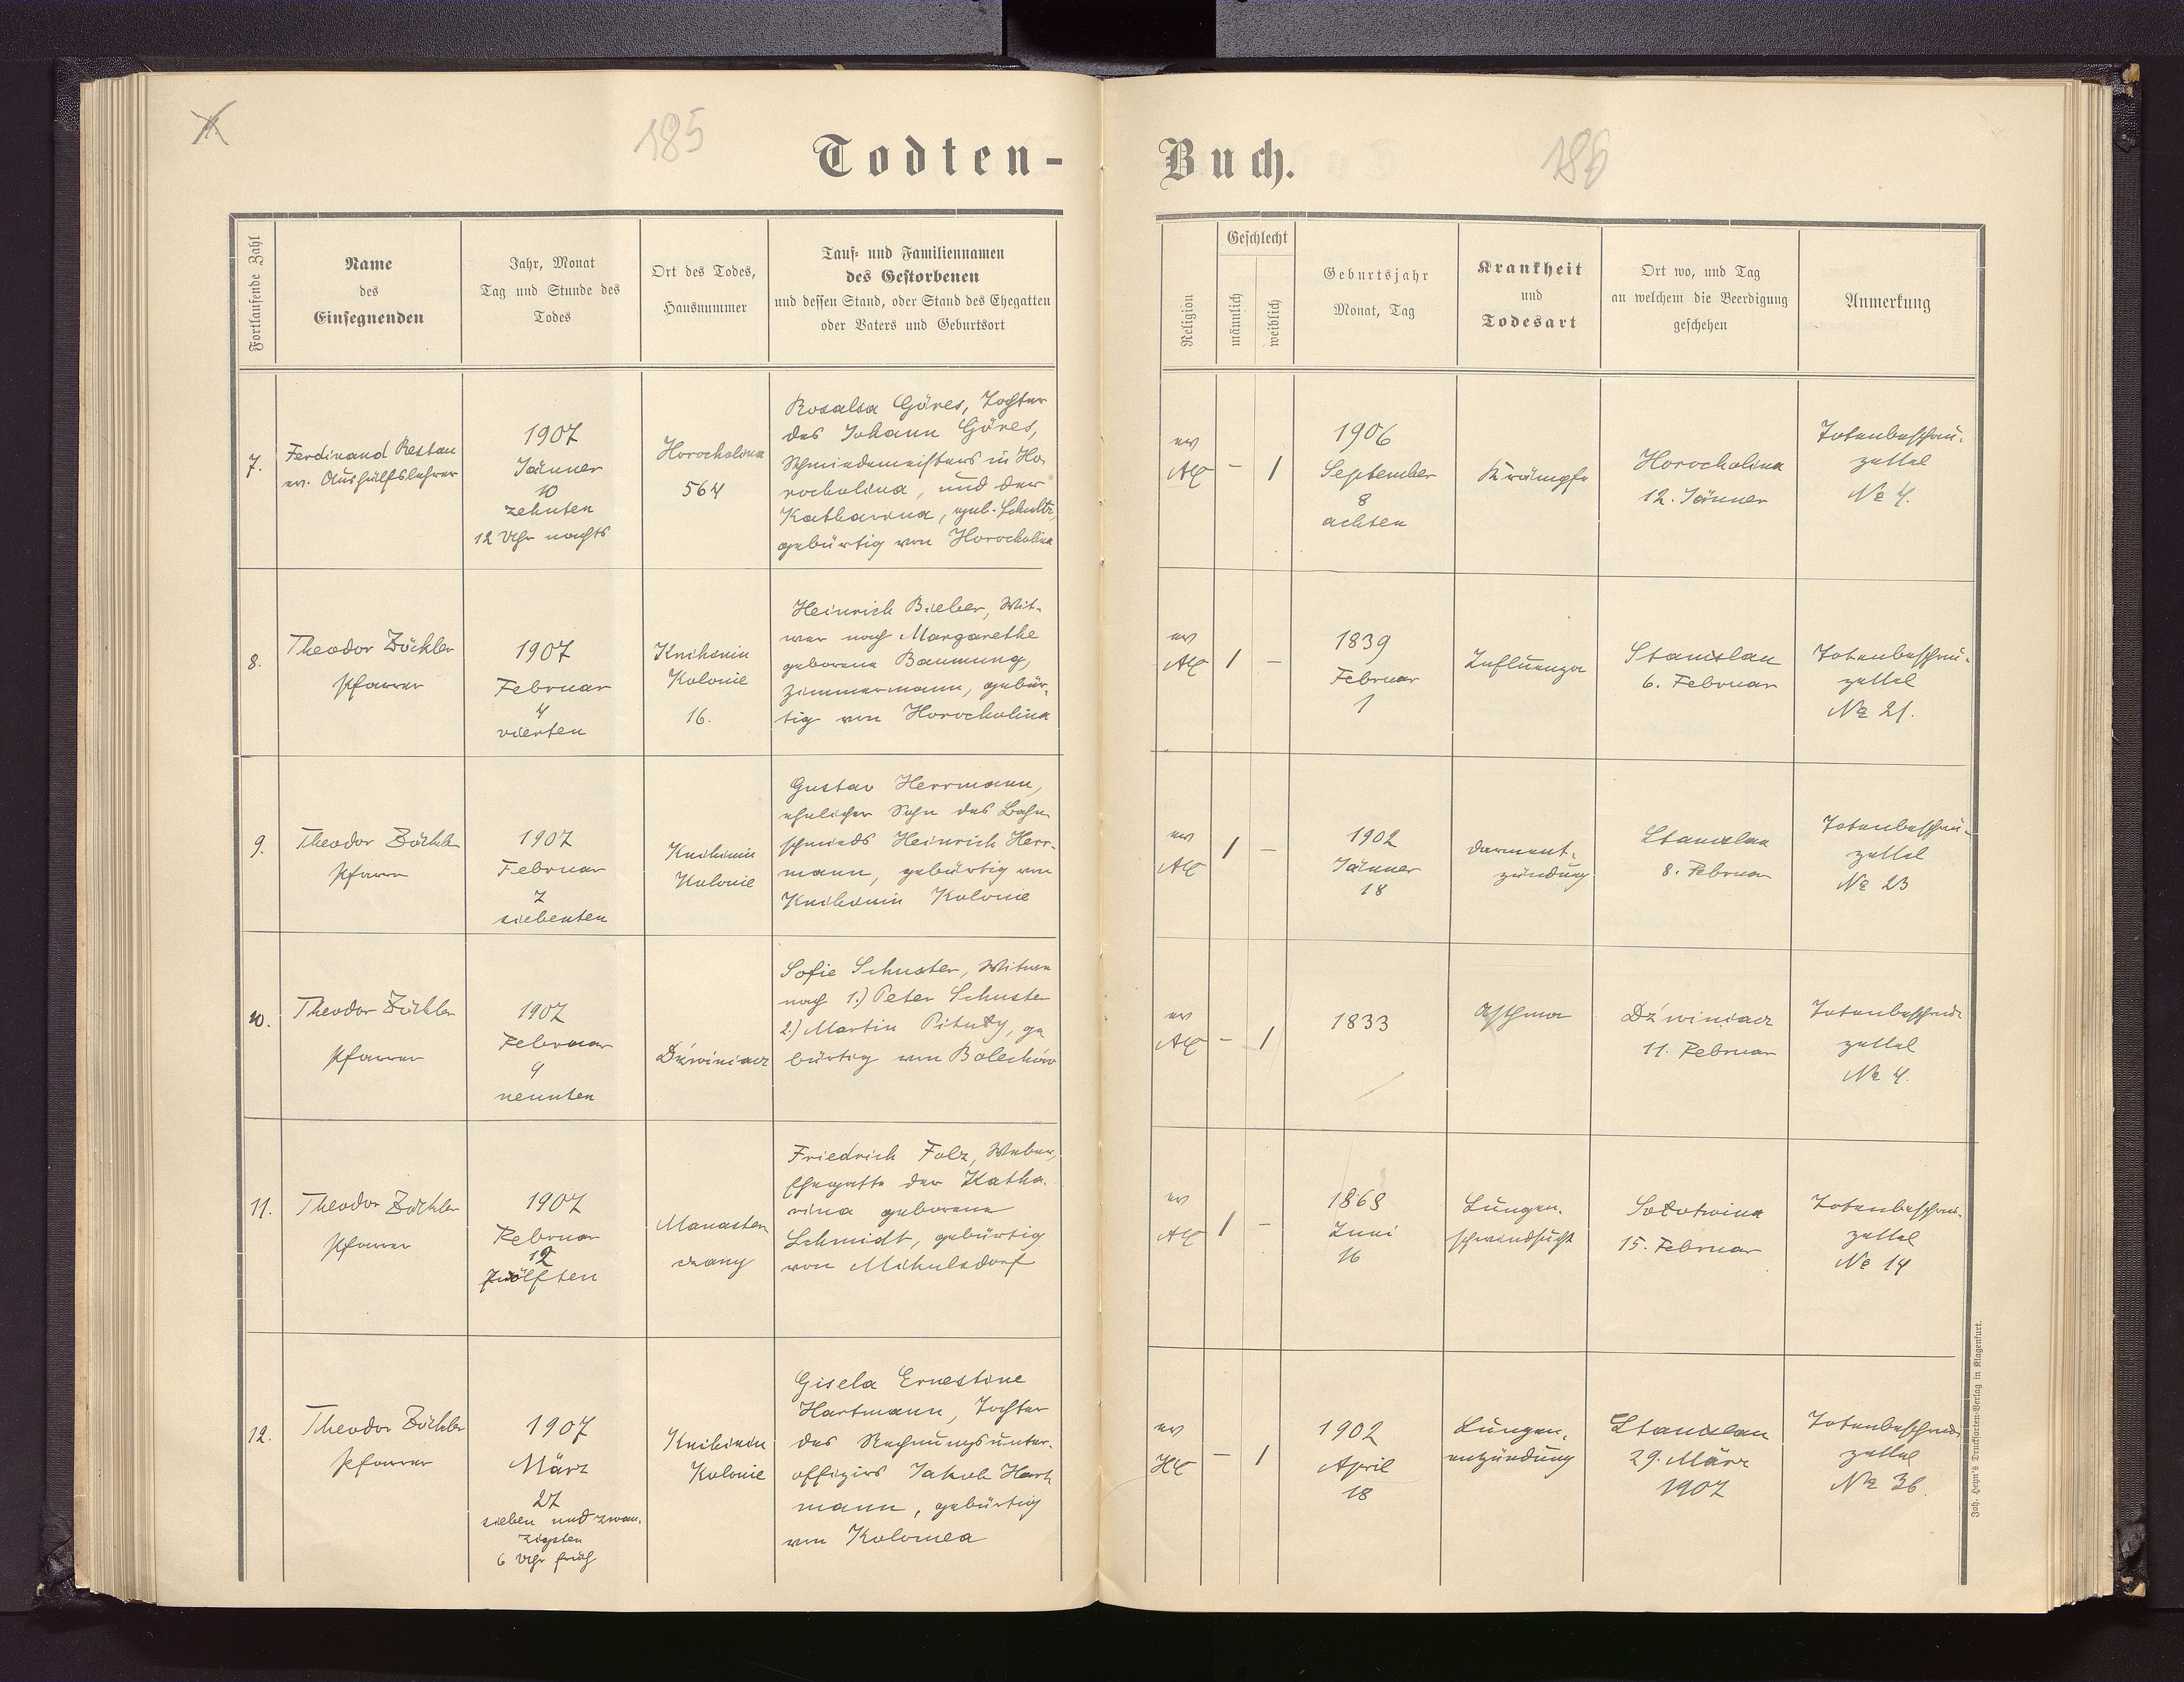 185
186
Todten-
Buch.
Fortlaufende Zahl
Name
des
Einsegnenden
Jahr, Monat
Tag und Stunde des
Todes
Ort des Todes,
Hausnummer
Tauf- und Familiennamen
des Gestorbenen
und dessen Stand, oder Stand des Ehegatten
oder Vaters und Geburtsort
Religion
Geschlecht
männlich
weiblich
Geburtsjahr
Monat, Tag
Krankheit
und
Todesart
Ort wo, und Tag
an welchem die Beerdigung
geschehen
Anmerkung
7.
Ferdinand Restau
ev. Aushülfslehrer
1907
Jänner
10
zehnten
12 Uhr nachts
Horocholina
564
Rosalia Göres, Tochter
des Johann Göres,
Schmiedemeisters in Ho-
rocholina, und der
Katharina, geb. Schultz,
gebürtig von Horocholina
ev
AC
–
1
1906
September
8
achten
Krämpfe
Horocholina
12. Jänner
Totenbeschau-
zettel
№ 4.
8.
Theodor Zöckler
Pfarrer
1907
Februar
4
vierten
Knihinin
Kolonie
16.
Heinrich Bieber, Wit-
wer nach Margarethe
geborene Baumung,
Zimmermann, gebür-
tig von Horocholina
ev
AC
1
–
1839
Februar
1
Influenza
Stanislau
6. Februar
Totenbeschau-
zettel
№ 21.
9.
Theodor Zöckler
Pfarrer
1907
Februar
7
siebenten
Knihinin
Kolonie
Gustav Herrmann,
ehelicher Sohn des Bahn
schmieds Heinrich Herr-
mann, gebürtig von
Knihinin Kolonie
ev
AC
1
–
1902
Jänner
18
Darment-
zündung
Stanislau
8. Februar
Totenbeschau-
zettel
№ 23
10.
Theodor Zöckler
Pfarrer
1907
Februar
9
neunten
Dźwiniacz
Sofie Schuster, Witwe
nach 1.) Peter Schuster
2.) Martin ge
bürtig von Bolechów
ev
AC
–
1
1833
Asthma
Dźwiniacz
11. Februar
Totenbeschau
zettel
№ 4.
11.
Theodor Zöckler
Pfarrer
1907
Februar
12
zwölften
Manaster
czany
Friedrich Folz, Weber,
Ehegatte der Katha-
rina geborene
Schmidt, gebürtig
von Mikulsdorf
ev
AC
1
–
1868
Juni
16
Lungen-
schwindsucht
Sołotwina
15. Februar
Totenbeschau-
zettel
№ 14
12.
Theodor Zöckler
Pfarrer
1907
März
27
sieben und zwan-
zigsten
6 Uhr früh
Knihinin
Kolonie
Gisela Ernestine
Hartmann, Tochter
des Rechnungsunter-
offiziers Jakob Hart
mann, gebürtig
von Kolomea
ev
HC
–
1
1902
April
18
Lungen-
entzündung
Stanislau
29. März
1907
Totenbeschau
zettel
№ 36.
Joh. Heyn's Drucksorten-Verlag in Klagenfurt.